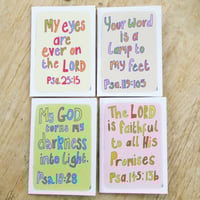 My eyes
are ever on
the LORD
Psa.25:15
Your word
is a
Lamp to
my feet
Psa.119:105
My GOD
turns my
darkness
into light.
Psa.18:28
The LORD
is faithful
to all His
Promises
Psa.145:13b